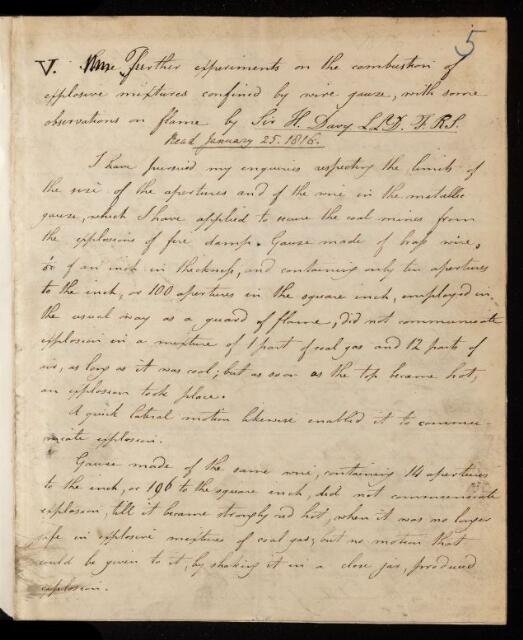 5
V. Some Further experiments on the combustion of
explosive mixtures confined by wire gauze, with some
observations on flame by Sir H. Davy L.L.D. F.R.S.
Read January 25. 1816.
I have pursued my enquiries respecting the limits of
the size of the apertures and of the wire in the metallic
gauze, which I have applied to secure the coal mines from
the explosions of fire damp. Gauze made of brass wire,
of an inch in thickness, and containing only ten apertures
to the inch, or 100 apertures in the square inch, employed in
the usual way as a guard of flame, did not communicate
explosion in a mixture of 1 part of coal gas and 12 parts of
air, as long as it was cool; but as soon as the top became hot,
an explosion took place.
A quick lateral motion likewise enabled it to commu-
nicate explosion.
Gauze made of the same wire, containing 14 apertures
to the inch, or 196 to the square inch, did not communicate
explosion, till it became strongly red hot, when it was no longer
safe in explosive mixtures of coal gas; but no motion that
could be given to it, by shaking it in a close jar, produced
explosion.